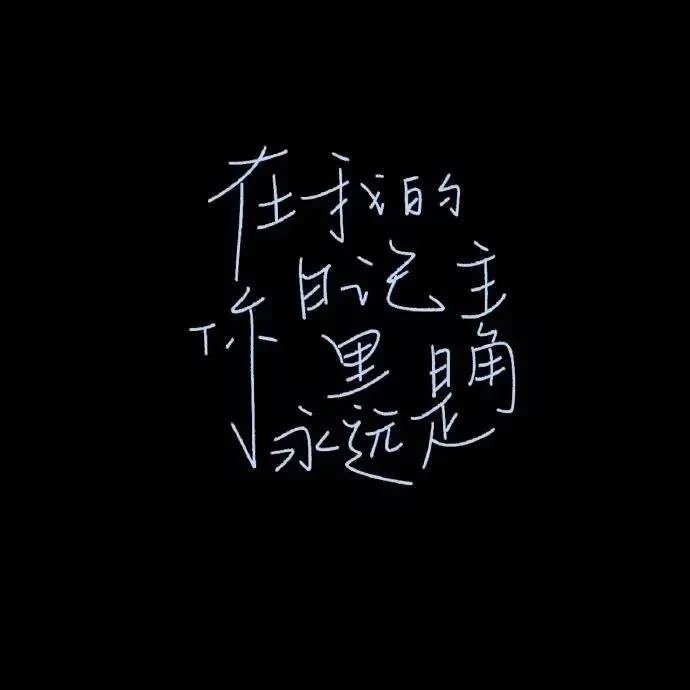 在我的
日记 主
你 里 角
永远是